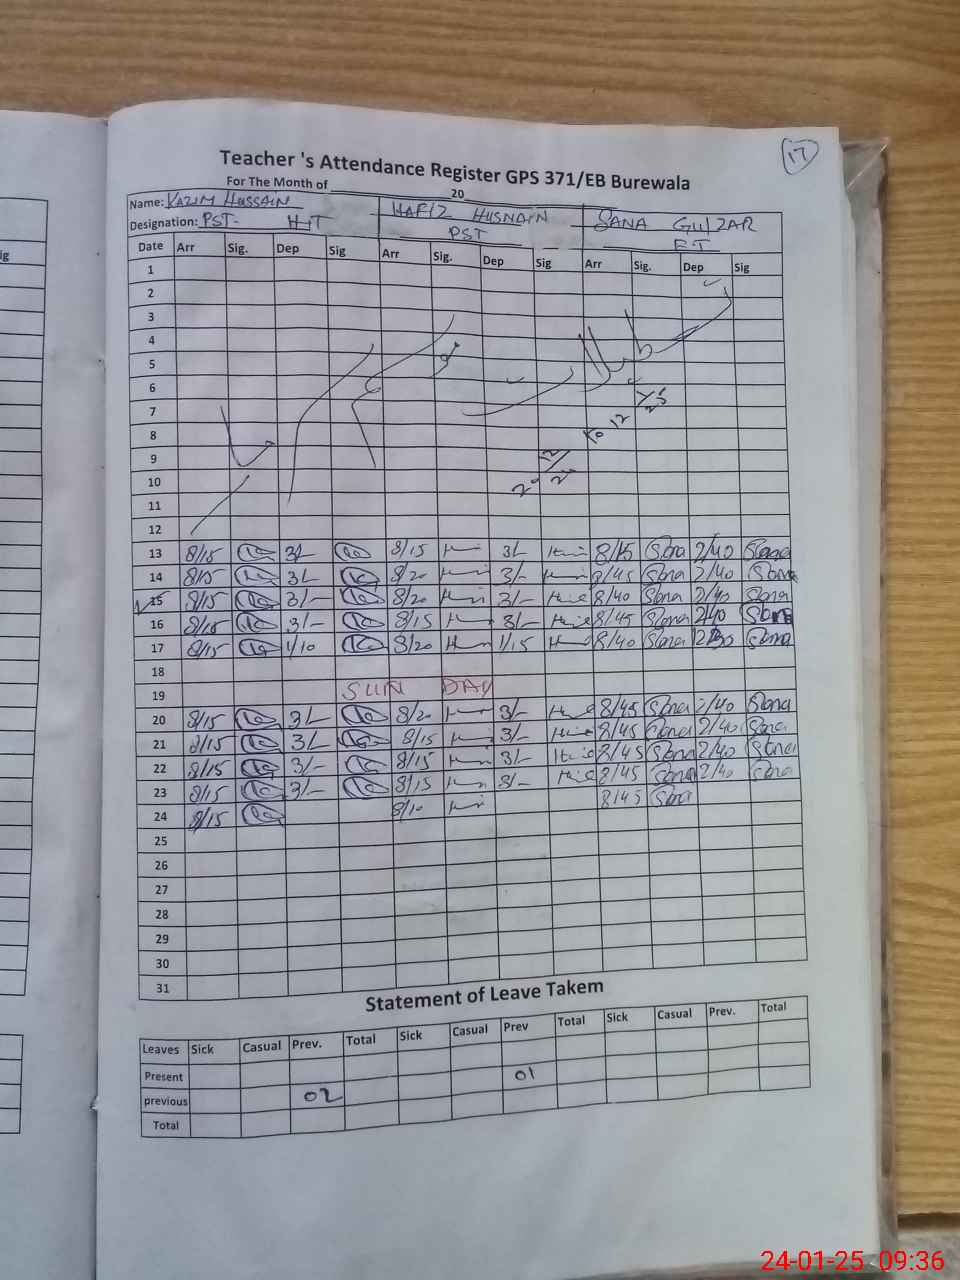 17
Teacher 's Attendance Register GPS 371/EB Burewala
For The Month of 20
Name: KAZIM HUSSAIN HAFIZ HUSNAIN SANA GULZAR
Designation: PST- H-T PST ET
Date Arr Sig. Dep Sig Arr Sig. Dep Sig Arr Sig. Dep Sig
1
2
3
4
5
6
7
8
9
10
11
12
13 8/15 3/- 8/15 3/- 8/45 Sana 2/40 Sana
14 8/15 3/- 8/20 3/- 8/45 Sana 2/40 Sana
15 8/15 3/- 8/20 3/- 8/40 Sana 2/40 Sana
16 8/15 3/- 8/15 3/- 8/45 Sana 2/40 Sana
17 8/15 1/10 8/20 1/15 8/40 Sana Sana
18
19 SUN DAY
20 8/15 3/- 8/20 3/- 8/45 Sana 2/40 Sana
21 8/15 3/- 8/15 3/- 8/45 Sana 2/40 Sana
22 8/15 3/- 8/15 3/- 8/45 Sana 2/40 Sana
23 8/15 3/- 8/15 3/- 8/45 Sana 2/40 Sana
24 8/15 8/10 8/45 Sana
25
26
27
28
29
30
31
Statement of Leave Takem
Leaves Sick Casual Prev. Total Sick Casual Prev Total Sick Casual Prev. Total
Present 01
previous 02
Total
24-01-25 09:36